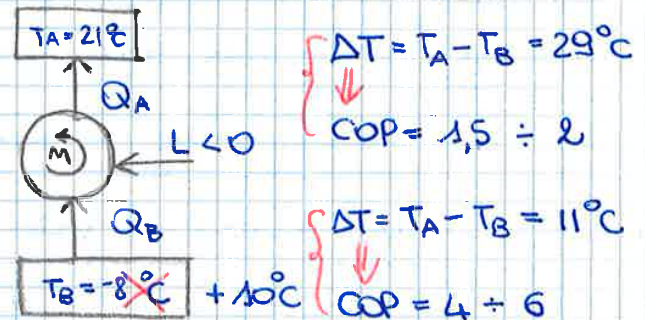 TA = 21°C
QA
M
L < 0
QB
TB = -8°C + 10°C
ΔT = TA - TB = 29°C
COP = 1,5 ÷ 2
ΔT = TA - TB = 11°C
COP = 4 ÷ 6